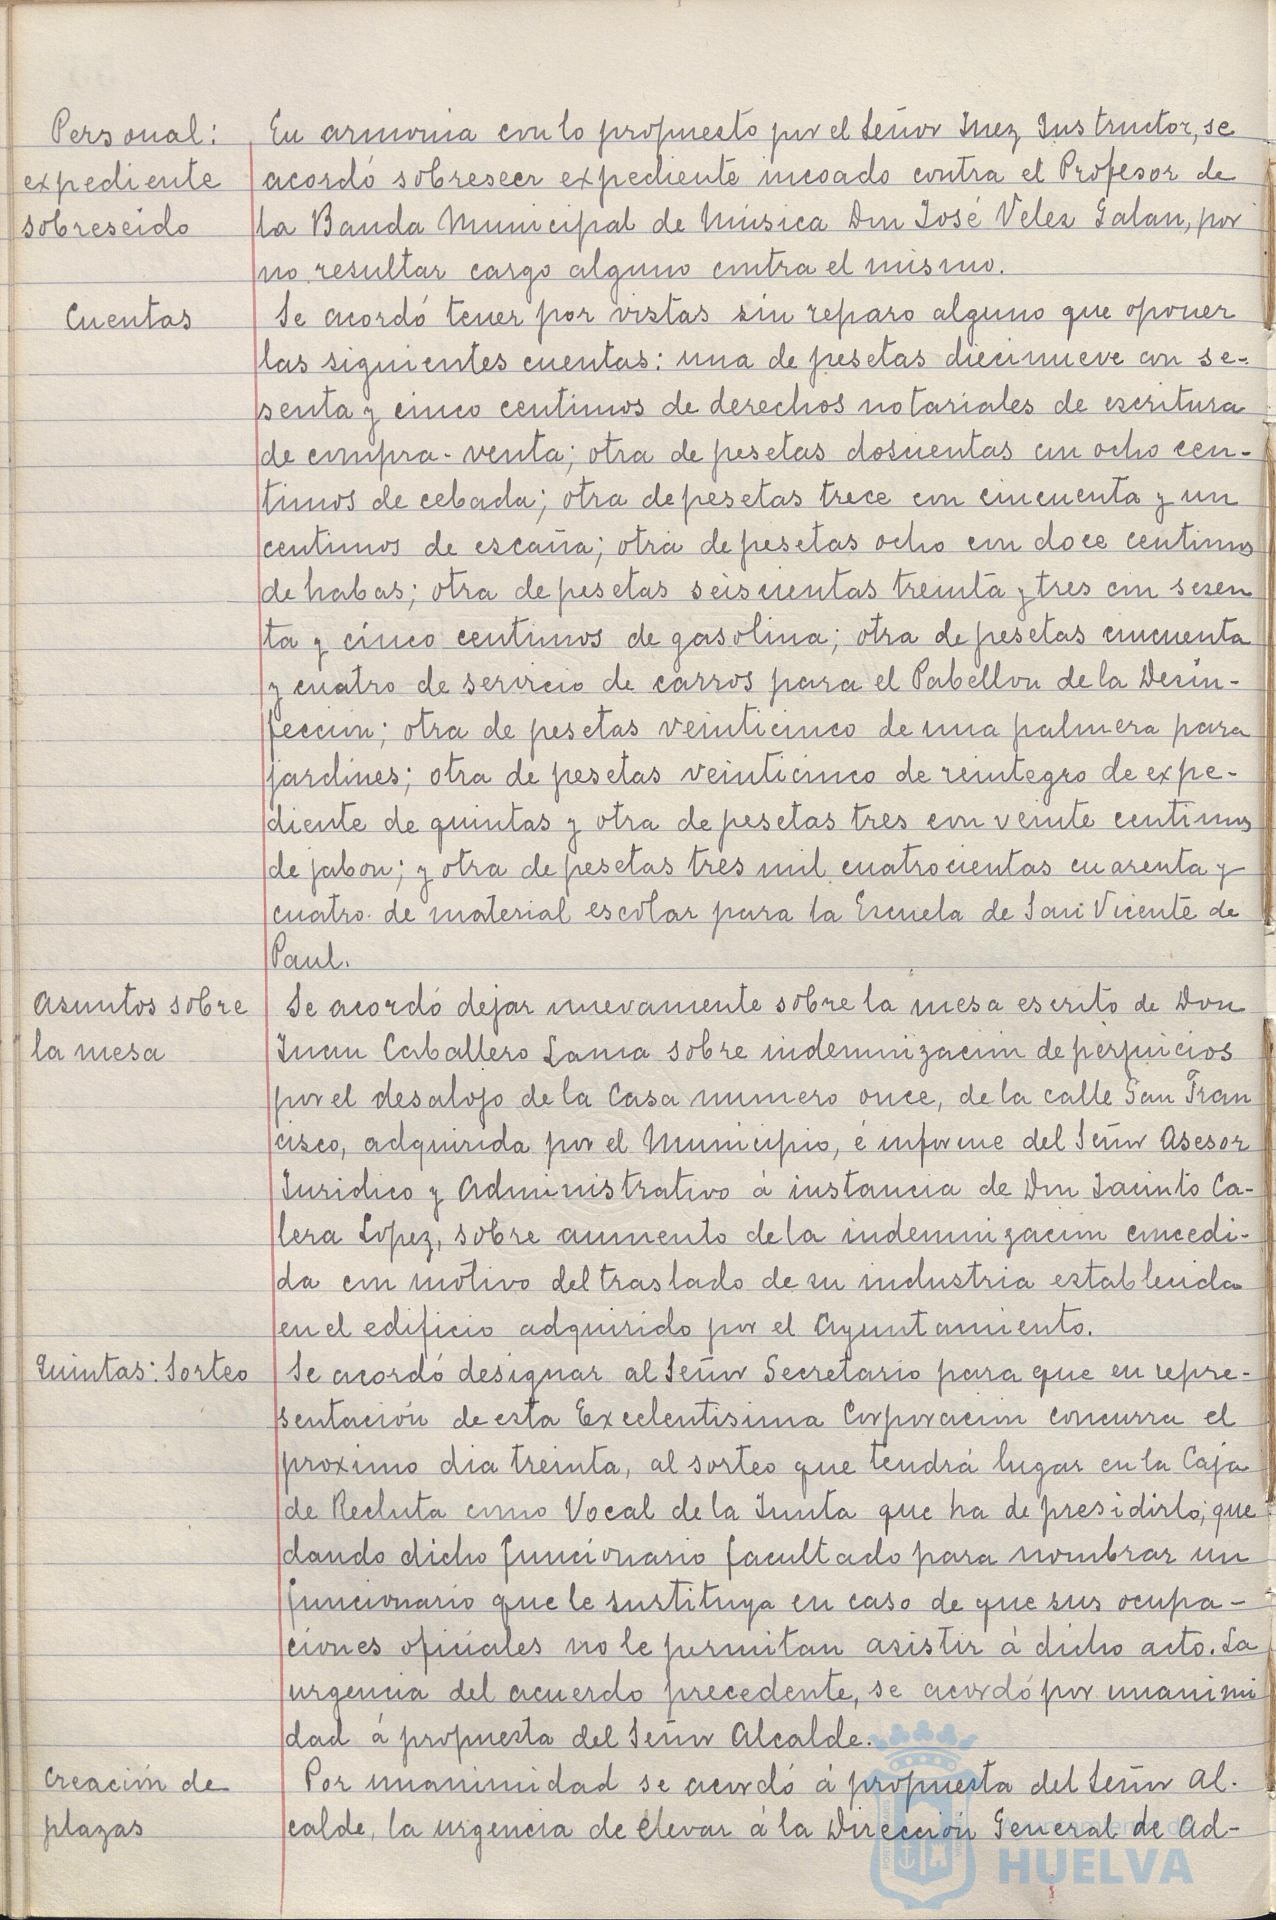 Personal: En armonia con lo propuesto por el Señor Juez Instructor, se
expediente acordó sobreseer expediente incoado contra el Profesor de
sobreseido la Banda Municipal de Música Don José Velez Galan, por
no resultar cargo alguno contra el mismo.
Cuentas Se acordó tener por vistas sin reparo alguno que oponer
las siguientes cuentas: una de pesetas diecinueve con se-
senta y cinco centimos de derechos notariales de escritura
de compra-venta; otra de pesetas doscientas con ocho cen-
timos de cebada; otra de pesetas trece con cincuenta y un
centimos de escaña; otra de pesetas ocho con doce centimos
de habas; otra de pesetas seiscientas treinta y tres con sesen
ta y cinco centimos de gasolina; otra de pesetas cincuenta
y cuatro de servicio de carros para el Pabellon de la Desin-
feccion; otra de pesetas veinticinco de una palmera para
jardines; otra de pesetas veinticinco de reintegro de expe-
diente de quintas y otra de pesetas tres con veinte centimos
de jabon; y otra de pesetas tres mil cuatrocientas cuarenta y
cuatro de material escolar para la Escuela de San Vicente de
Paul.
Asuntos sobre Se acordó dejar nuevamente sobre la mesa escrito de Don
la mesa Juan Caballero Lama sobre indemnizacion de perjuicios
por el desalojo de la Casa numero once, de la calle San Fran
cisco, adquirida por el Municipio, é informe del Señor Asesor
Juridico y Administrativo á instancia de Don Jacinto Ca-
lera Lopez, sobre aumento de la indemnizacion concedi-
da con motivo del traslado de su industria establecida
en el edificio adquirido por el Ayuntamiento.
Quintas: Sorteo Se acordó designar al Señor Secretario para que en repre-
sentación de esta Excelentisima Corporacion concurra el
proximo dia treinta, al sorteo que tendrá lugar en la Caja
de Recluta como Vocal de la Junta que ha de presidirlo; que
dando dicho funcionario facultado para nombrar un
funcionario que le sustituya en caso de que sus ocupa-
ciones oficiales no le permitan asistir á dicho acto. La
urgencia del acuerdo precedente, se acordó por unanimi
dad á propuesta del Señor Alcalde.
Creación de Por unanimidad se acordó á propuesta del Señor Al-
plazas calde, la urgencia de elevar á la Dirección General de Ad-
Ayuntamiento de
HUELVA